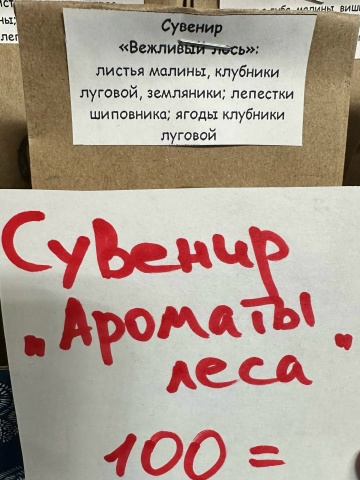 Сувенир
«Вежливый лось»:
листья малины, клубники
луговой, земляники; лепестки
шиповника; ягоды клубники
луговой
Сувенир
"Ароматы
леса"
100=